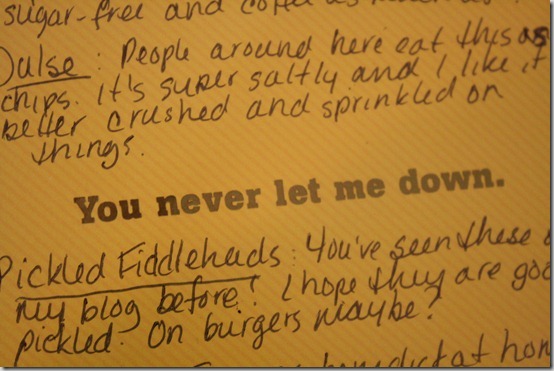 sugar-free and
Dulse: People around here eat this as
chips. It's super saltly and I like it
better crushed and sprinkled on
things.
You never let me down.
Pickled Fiddleheads: You've seen these
my blog before! I hope they are goo
pickled. On burgers maybe?
at hom